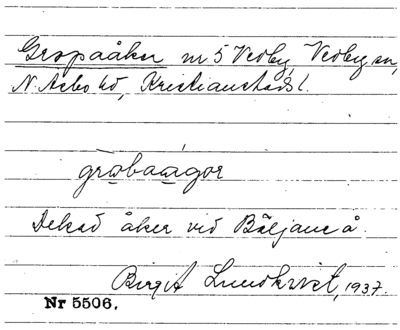 Gropaåker nr 5 Vedby, Vedby sn,
N. Åsbo hd, Kristianstads l.
grobaågor
Dikad åker vid Bäljane å.
Birgit Lundkvist, 1937.
Nr 5506.